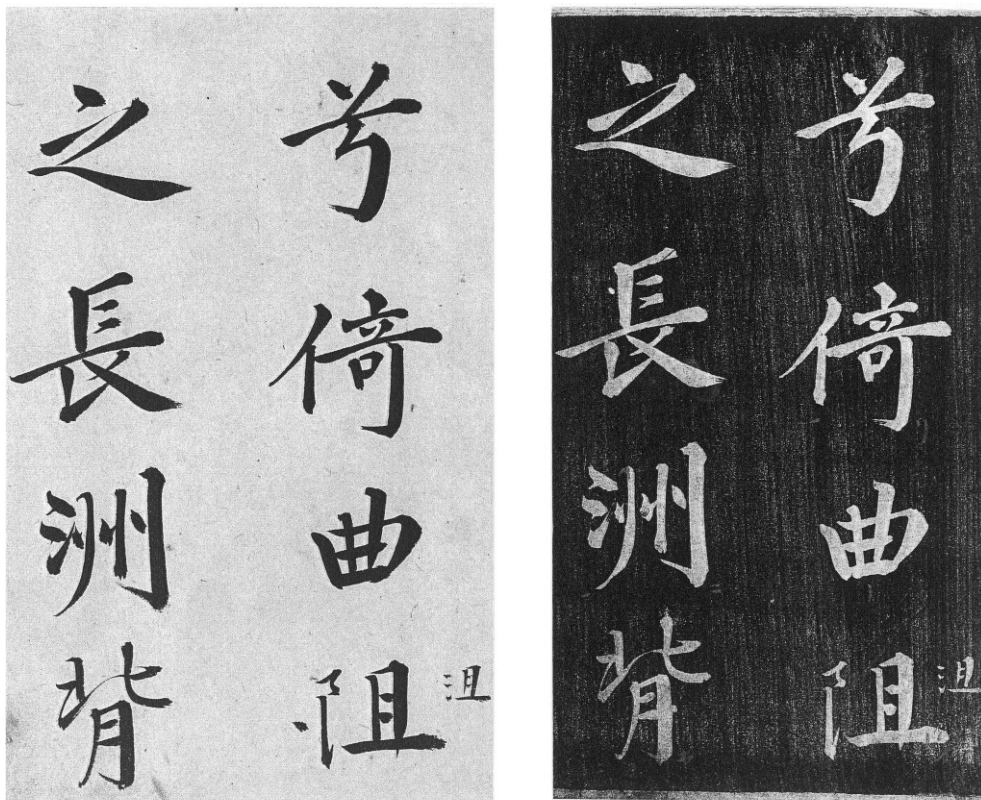 兮倚曲阻
沮
之長洲背
兮倚曲阻
沮
之長洲背